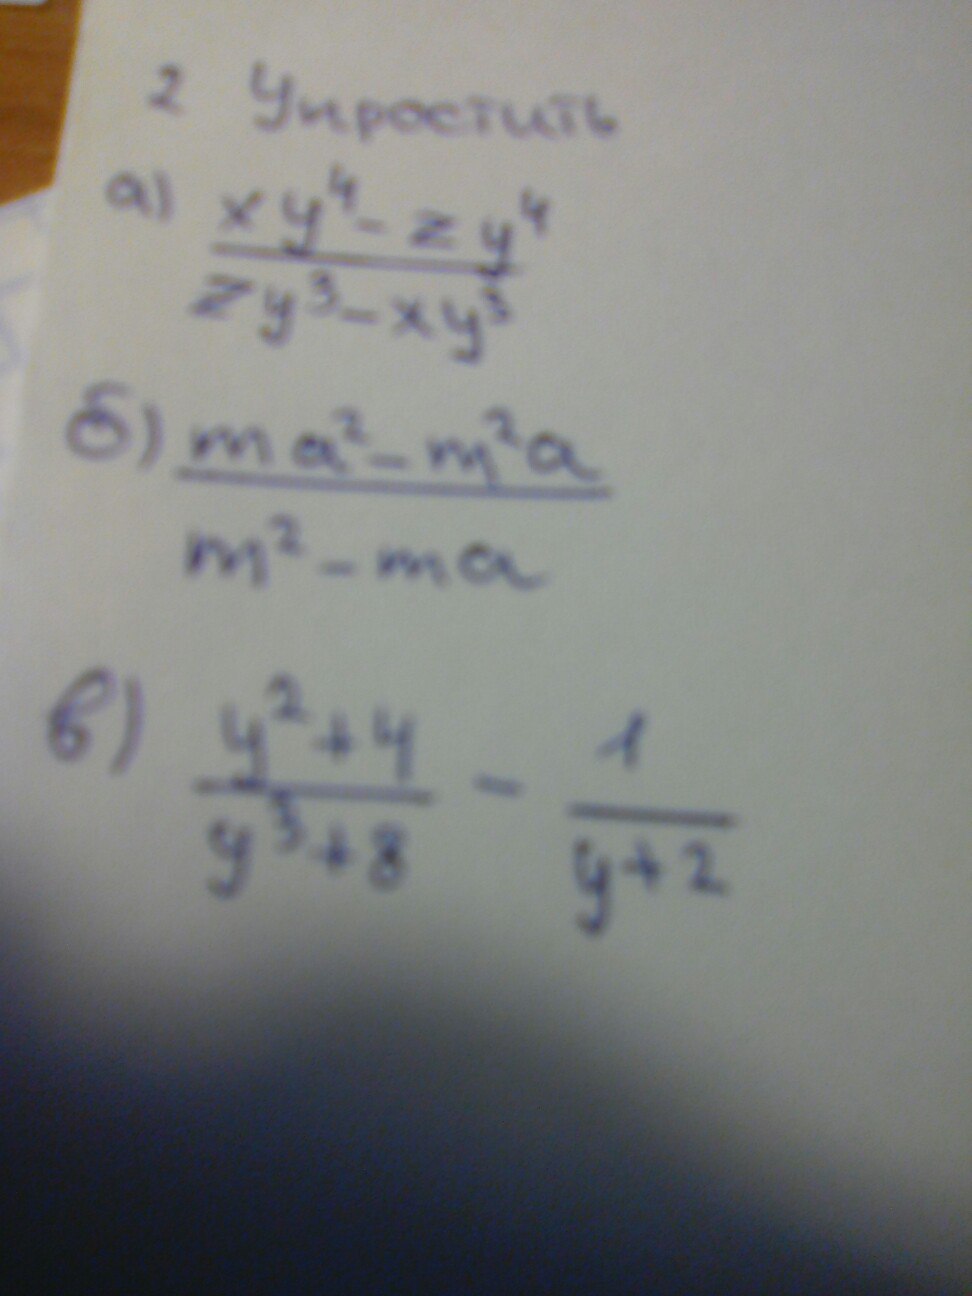 2 Упростить
а) xy⁴ - zy⁴
zy³ - xy³
б) ma² - m²a
m² - ma
в) y² + 4 - 1
y³ + 8 y + 2